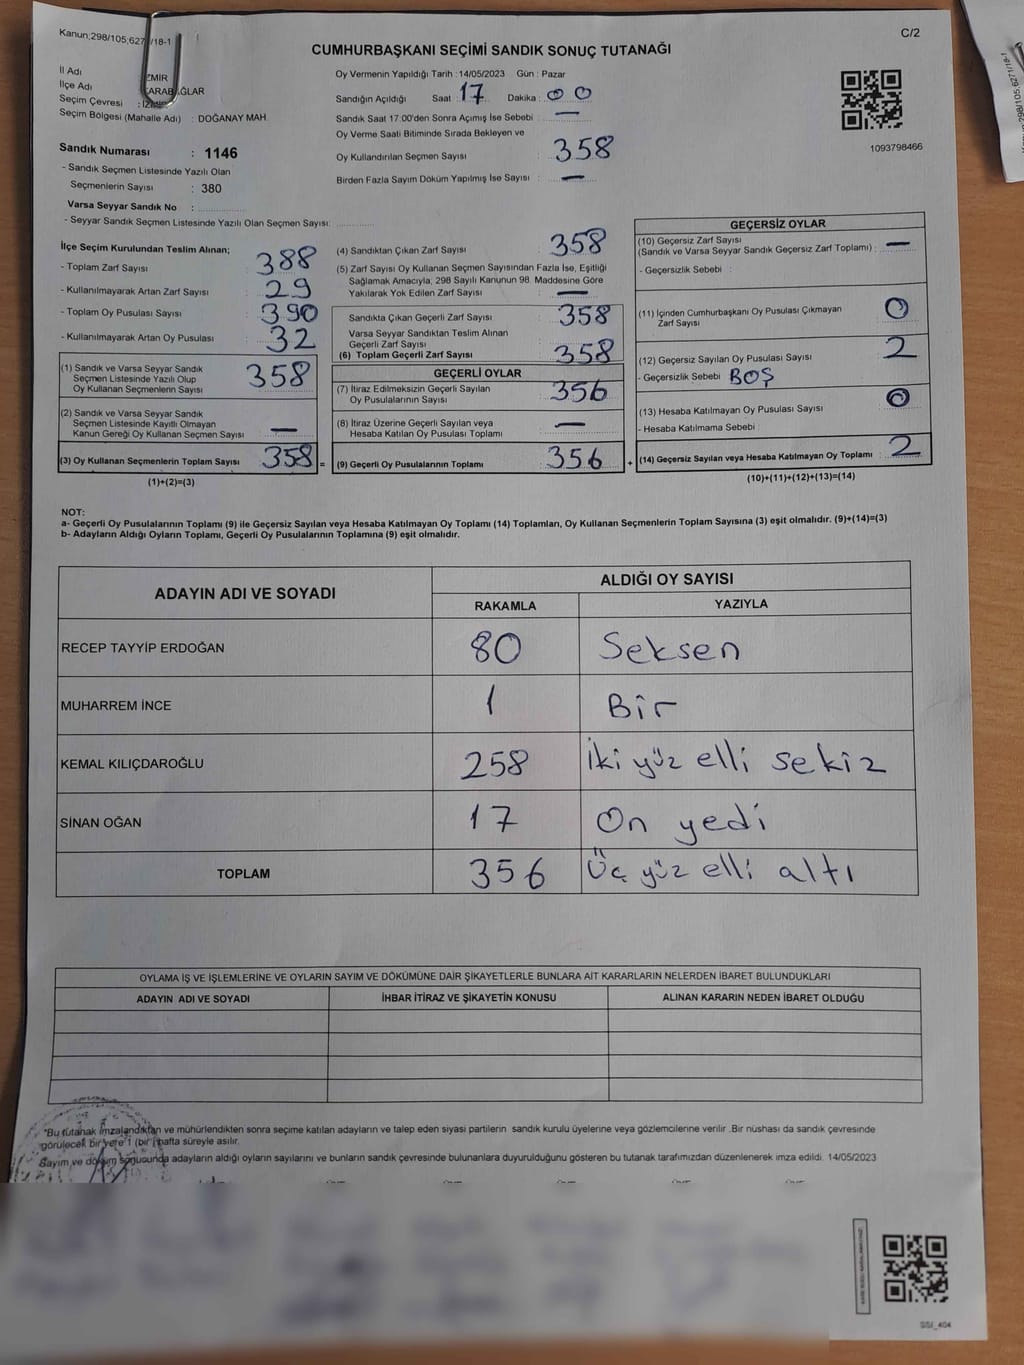 Kanun;298/105;627 /18-1
C/2
CUMHURBAŞKANI SEÇİMİ SANDIK SONUÇ TUTANAĞI
İl Adı İZMİR
İlçe Adı KARABAĞLAR
Seçim Çevresi : İZMİR
Seçim Bölgesi (Mahalle Adı) : DOĞANAY MAH.
Sandık Numarası : 1146
- Sandık Seçmen Listesinde Yazılı Olan
Seçmenlerin Sayısı : 380
Varsa Seyyar Sandık No :
- Seyyar Sandık Seçmen Listesinde Yazılı Olan Seçmen Sayısı:
Oy Vermenin Yapıldığı Tarih : 14/05/2023 Gün : Pazar
Sandığın Açıldığı Saat : 17 Dakika : 00
Sandık Saat 17:00'den Sonra Açımış İse Sebebi : —
Oy Verme Saati Bitiminde Sırada Bekleyen ve
Oy Kullandırılan Seçmen Sayısı : 358
Birden Fazla Sayım Döküm Yapılmış İse Sayısı : —
1093798466
İlçe Seçim Kurulundan Teslim Alınan;
- Toplam Zarf Sayısı : 388
- Kullanılmayarak Artan Zarf Sayısı : 29
- Toplam Oy Pusulası Sayısı : 390
- Kullanılmayarak Artan Oy Pusulası : 32
(1) Sandık ve Varsa Seyyar Sandık
Seçmen Listesinde Yazılı Olup
Oy Kullanan Seçmenlerin Sayısı : 358
(2) Sandık ve Varsa Seyyar Sandık
Seçmen Listesinde Kayıtlı Olmayan
Kanun Gereği Oy Kullanan Seçmen Sayısı : —
(3) Oy Kullanan Seçmenlerin Toplam Sayısı : 358 =
(1)+(2)=(3)
(4) Sandıktan Çıkan Zarf Sayısı : 358
(5) Zarf Sayısı Oy Kullanan Seçmen Sayısından Fazla İse, Eşitliği
Sağlamak Amacıyla; 298 Sayılı Kanunun 98. Maddesine Göre
Yakılarak Yok Edilen Zarf Sayısı : —
Sandıkta Çıkan Geçerli Zarf Sayısı : 358
Varsa Seyyar Sandıktan Teslim Alınan
Geçerli Zarf Sayısı :
(6) Toplam Geçerli Zarf Sayısı : 358
GEÇERLİ OYLAR
(7) İtiraz Edilmeksizin Geçerli Sayılan
Oy Pusulalarının Sayısı : 356
(8) İtiraz Üzerine Geçerli Sayılan veya
Hesaba Katılan Oy Pusulası Toplamı : —
(9) Geçerli Oy Pusulalarının Toplamı : 356 +
GEÇERSİZ OYLAR
(10) Geçersiz Zarf Sayısı
(Sandık ve Varsa Seyyar Sandık Geçersiz Zarf Toplamı) : —
- Geçersizlik Sebebi :
(11) İçinden Cumhurbaşkanı Oy Pusulası Çıkmayan
Zarf Sayısı : 0
(12) Geçersiz Sayılan Oy Pusulası Sayısı : 2
- Geçersizlik Sebebi : BOŞ
(13) Hesaba Katılmayan Oy Pusulası Sayısı : 0
- Hesaba Katılmama Sebebi :
(14) Geçersiz Sayılan veya Hesaba Katılmayan Oy Toplamı : 2
(10)+(11)+(12)+(13)=(14)
NOT:
a- Geçerli Oy Pusulalarının Toplamı (9) ile Geçersiz Sayılan veya Hesaba Katılmayan Oy Toplamı (14) Toplamları, Oy Kullanan Seçmenlerin Toplam Sayısına (3) eşit olmalıdır. (9)+(14)=(3)
b- Adayların Aldığı Oyların Toplamı, Geçerli Oy Pusulalarının Toplamına (9) eşit olmalıdır.
ADAYIN ADI VE SOYADI ALDIĞI OY SAYISI
RAKAMLA YAZIYLA
RECEP TAYYİP ERDOĞAN 80 Seksen
MUHARREM İNCE 1 Bir
KEMAL KILIÇDAROĞLU 258 İki yüz elli sekiz
SİNAN OĞAN 17 On yedi
TOPLAM 356 Üç yüz elli altı
OYLAMA İŞ VE İŞLEMLERİNE VE OYLARIN SAYIM VE DÖKÜMÜNE DAİR ŞİKAYETLERLE BUNLARA AİT KARARLARIN NELERDEN İBARET BULUNDUKLARI
ADAYIN ADI VE SOYADI İHBAR İTİRAZ VE ŞİKAYETİN KONUSU ALINAN KARARIN NEDEN İBARET OLDUĞU
"Bu tutanak İmzalandıktan ve mühürlendikten sonra seçime katılan adayların ve talep eden siyasi partilerin sandık kurulu üyelerine veya gözlemcilerine verilir .Bir nüshası da sandık çevresinde
görülecek bir yere 1 (bir) hafta süreyle asılır.
Sayım ve döküm sonucunda adayların aldığı oyların sayılarını ve bunların sandık çevresinde bulunanlara duyurulduğunu gösteren bu tutanak tarafımızdan düzenlenerek imza edildi. 14/05/2023
SSI_404
298/105;6271/18-1